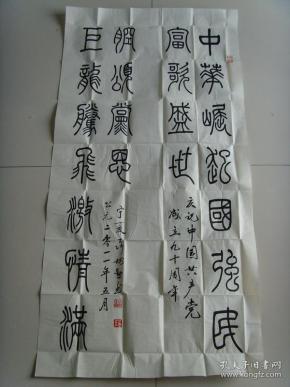 中華崛起國強民
富歌盛世
頌黨恩
巨龍騰飛激情滿
慶祝中国共产党
成立九十周年
公元二零一一年五月
孔夫子旧书网